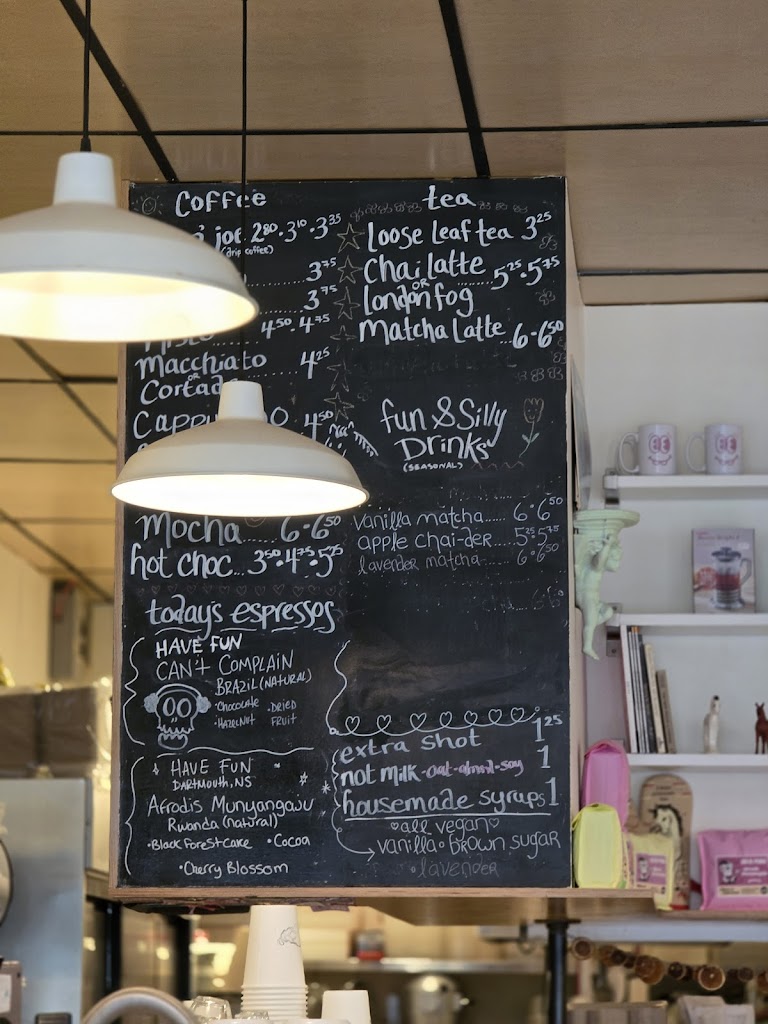 Coffee
joe 2.80 · 3.10 · 3.35
(drip coffee)
3.75
3.75
4.50 · 4.75
Macchiato
OR
4.25
4.50
Mocha 6 · 6.50
hot choc... 3.50 · 4.75 · 5.25
today's espressos
HAVE FUN
CAN'T COMPLAIN
BRAZIL (NATURAL)
· CHOCOLATE · DRIED
· HAZELNUT FRUIT
HAVE FUN
DARTMOUTH, NS
Afrodis Munyangaju
Rwanda (natural)
· Black Forest cake · Cocoa
· Cherry Blossom
tea
Loose Leaf tea 3.25
Chai latte
OR
5.25 · 5.75
london fog
Matcha Latte... 6 · 6.50
fun & Silly
Drinks
(SEASONAL)
vanilla matcha...... 6 · 6.50
apple chai-der.... 5.25 · 5.75
lavender matcha...... 6 · 6.50
extra shot 1.25
not milk - oat - almond - soy 1
housemade syrups 1
all vegan
vanilla · brown sugar
· lavender